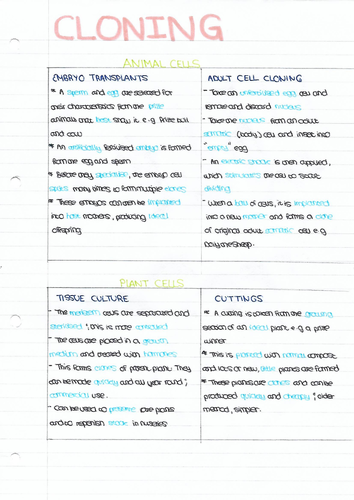 CLONING
ANIMAL CELLS
EMBRYO TRANSPLANTS
* A sperm and egg are selected for
their characteristics from the prize
animals that best show it e.g Prize bull
and cow
* An artificially fertilised embryo is formed
from the egg and sperm
* Before any specialism, the embryo cell
splits many times to form multiple clones
* These embryos can then be implanted
into host mothers, producing ideal
offspring
ADULT CELL CLONING
- Take an unfertilised egg cell and
remove and discard nucleus
- Take the nucleus from an adult
somatic (body) cell and insert into
"empty" egg
- An electric shock is then applied,
which stimulates the cell to start
dividing
- When a ball of cells, it is implanted
into a new mother and forms a clone
of original adult somatic cell e.g
Dolly the Sheep.
PLANT CELLS
TISSUE CULTURE
- The meristem cells are separated and
sterilised, this is more controlled
- The cells are placed in a growth
medium and treated with hormones
- This forms clones of parent plant. They
can be made quickly and all year round,
commercial use.
- Can be used to preserve rare plants
and to replenish stock in nurseries
CUTTINGS
* A cutting is taken from the growing
season of an ideal plant e.g. a prize
winner
* This is planted with normal compost
and lots of new, little plants are formed
* These plants are clones and can be
produced quickly and cheaply, older
method, simpler.